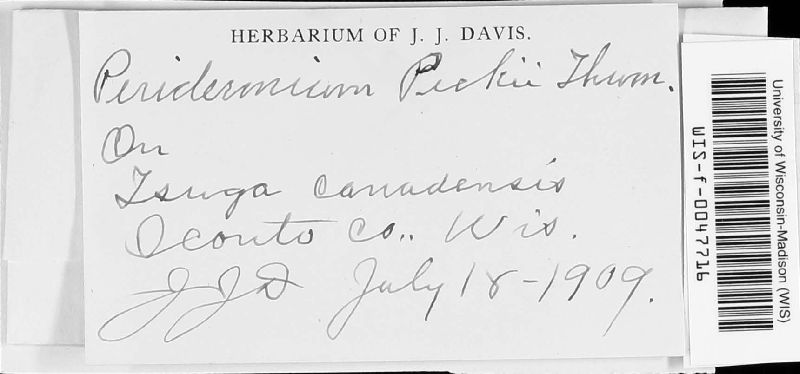 HERBARIUM OF J. J. DAVIS.
Peridermium Peckii Thum.
On
Tsuga canadensis
Oconto Co., Wis.
JJD July 18-1909.
University of Wisconsin-Madison (WIS)
WIS-f-0047716